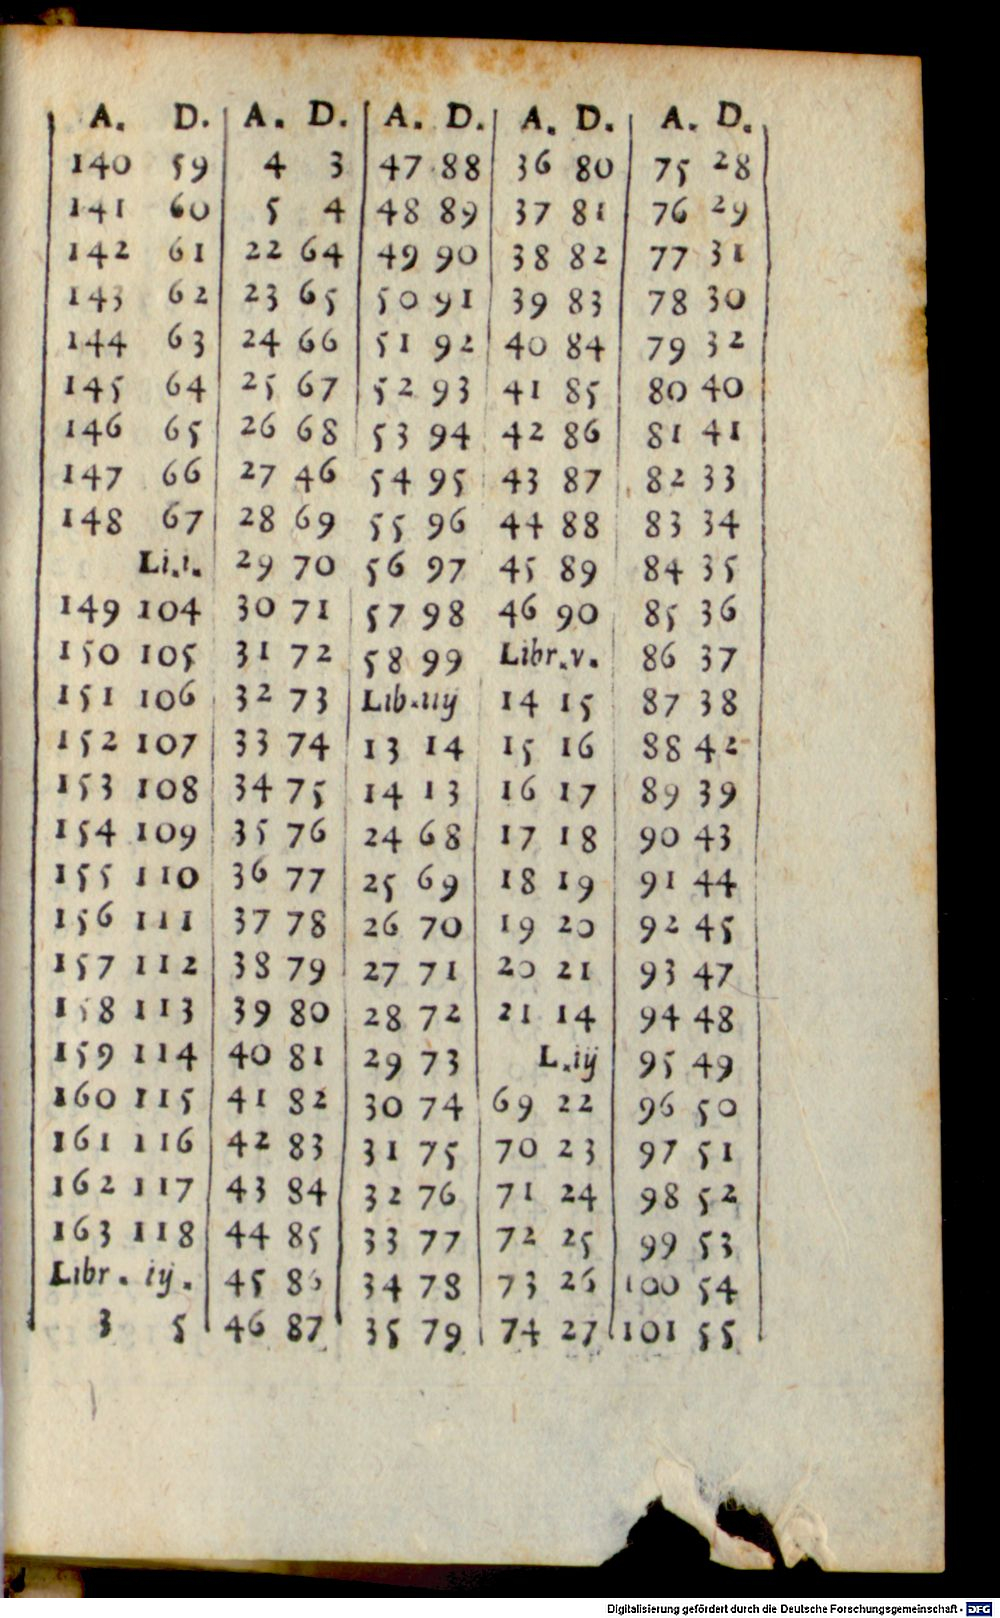 A. D. A. D. A. D. A. D. A. D.
140 59 4 3 47 88 36 80 75 28
141 60 5 4 48 89 37 81 76 29
142 61 22 64 49 90 38 82 77 31
143 62 23 65 50 91 39 83 78 30
144 63 24 66 51 92 40 84 79 32
145 64 25 67 52 93 41 85 80 40
146 65 26 68 53 94 42 86 81 41
147 66 27 46 54 95 43 87 82 33
148 67 28 69 55 96 44 88 83 34
Li.i. 29 70 56 97 45 89 84 35
149 104 30 71 57 98 46 90 85 36
150 105 31 72 58 99 Libr.v. 86 37
151 106 32 73 Lib.iiij 14 15 87 38
152 107 33 74 13 14 15 16 88 42
153 108 34 75 14 13 16 17 89 39
154 109 35 76 24 68 17 18 90 43
155 110 36 77 25 69 18 19 91 44
156 111 37 78 26 70 19 20 92 45
157 112 38 79 27 71 20 21 93 47
158 113 39 80 28 72 21 14 94 48
159 114 40 81 29 73 L.iij 95 49
160 115 41 82 30 74 69 22 96 50
161 116 42 83 31 75 70 23 97 51
162 117 43 84 32 76 71 24 98 52
163 118 44 85 33 77 72 25 99 53
Libr. iij. 45 86 34 78 73 26 100 54
3 5 46 87 35 79 74 27 101 55
Digitalisierung gefördert durch die Deutsche Forschungsgemeinschaft - DFG